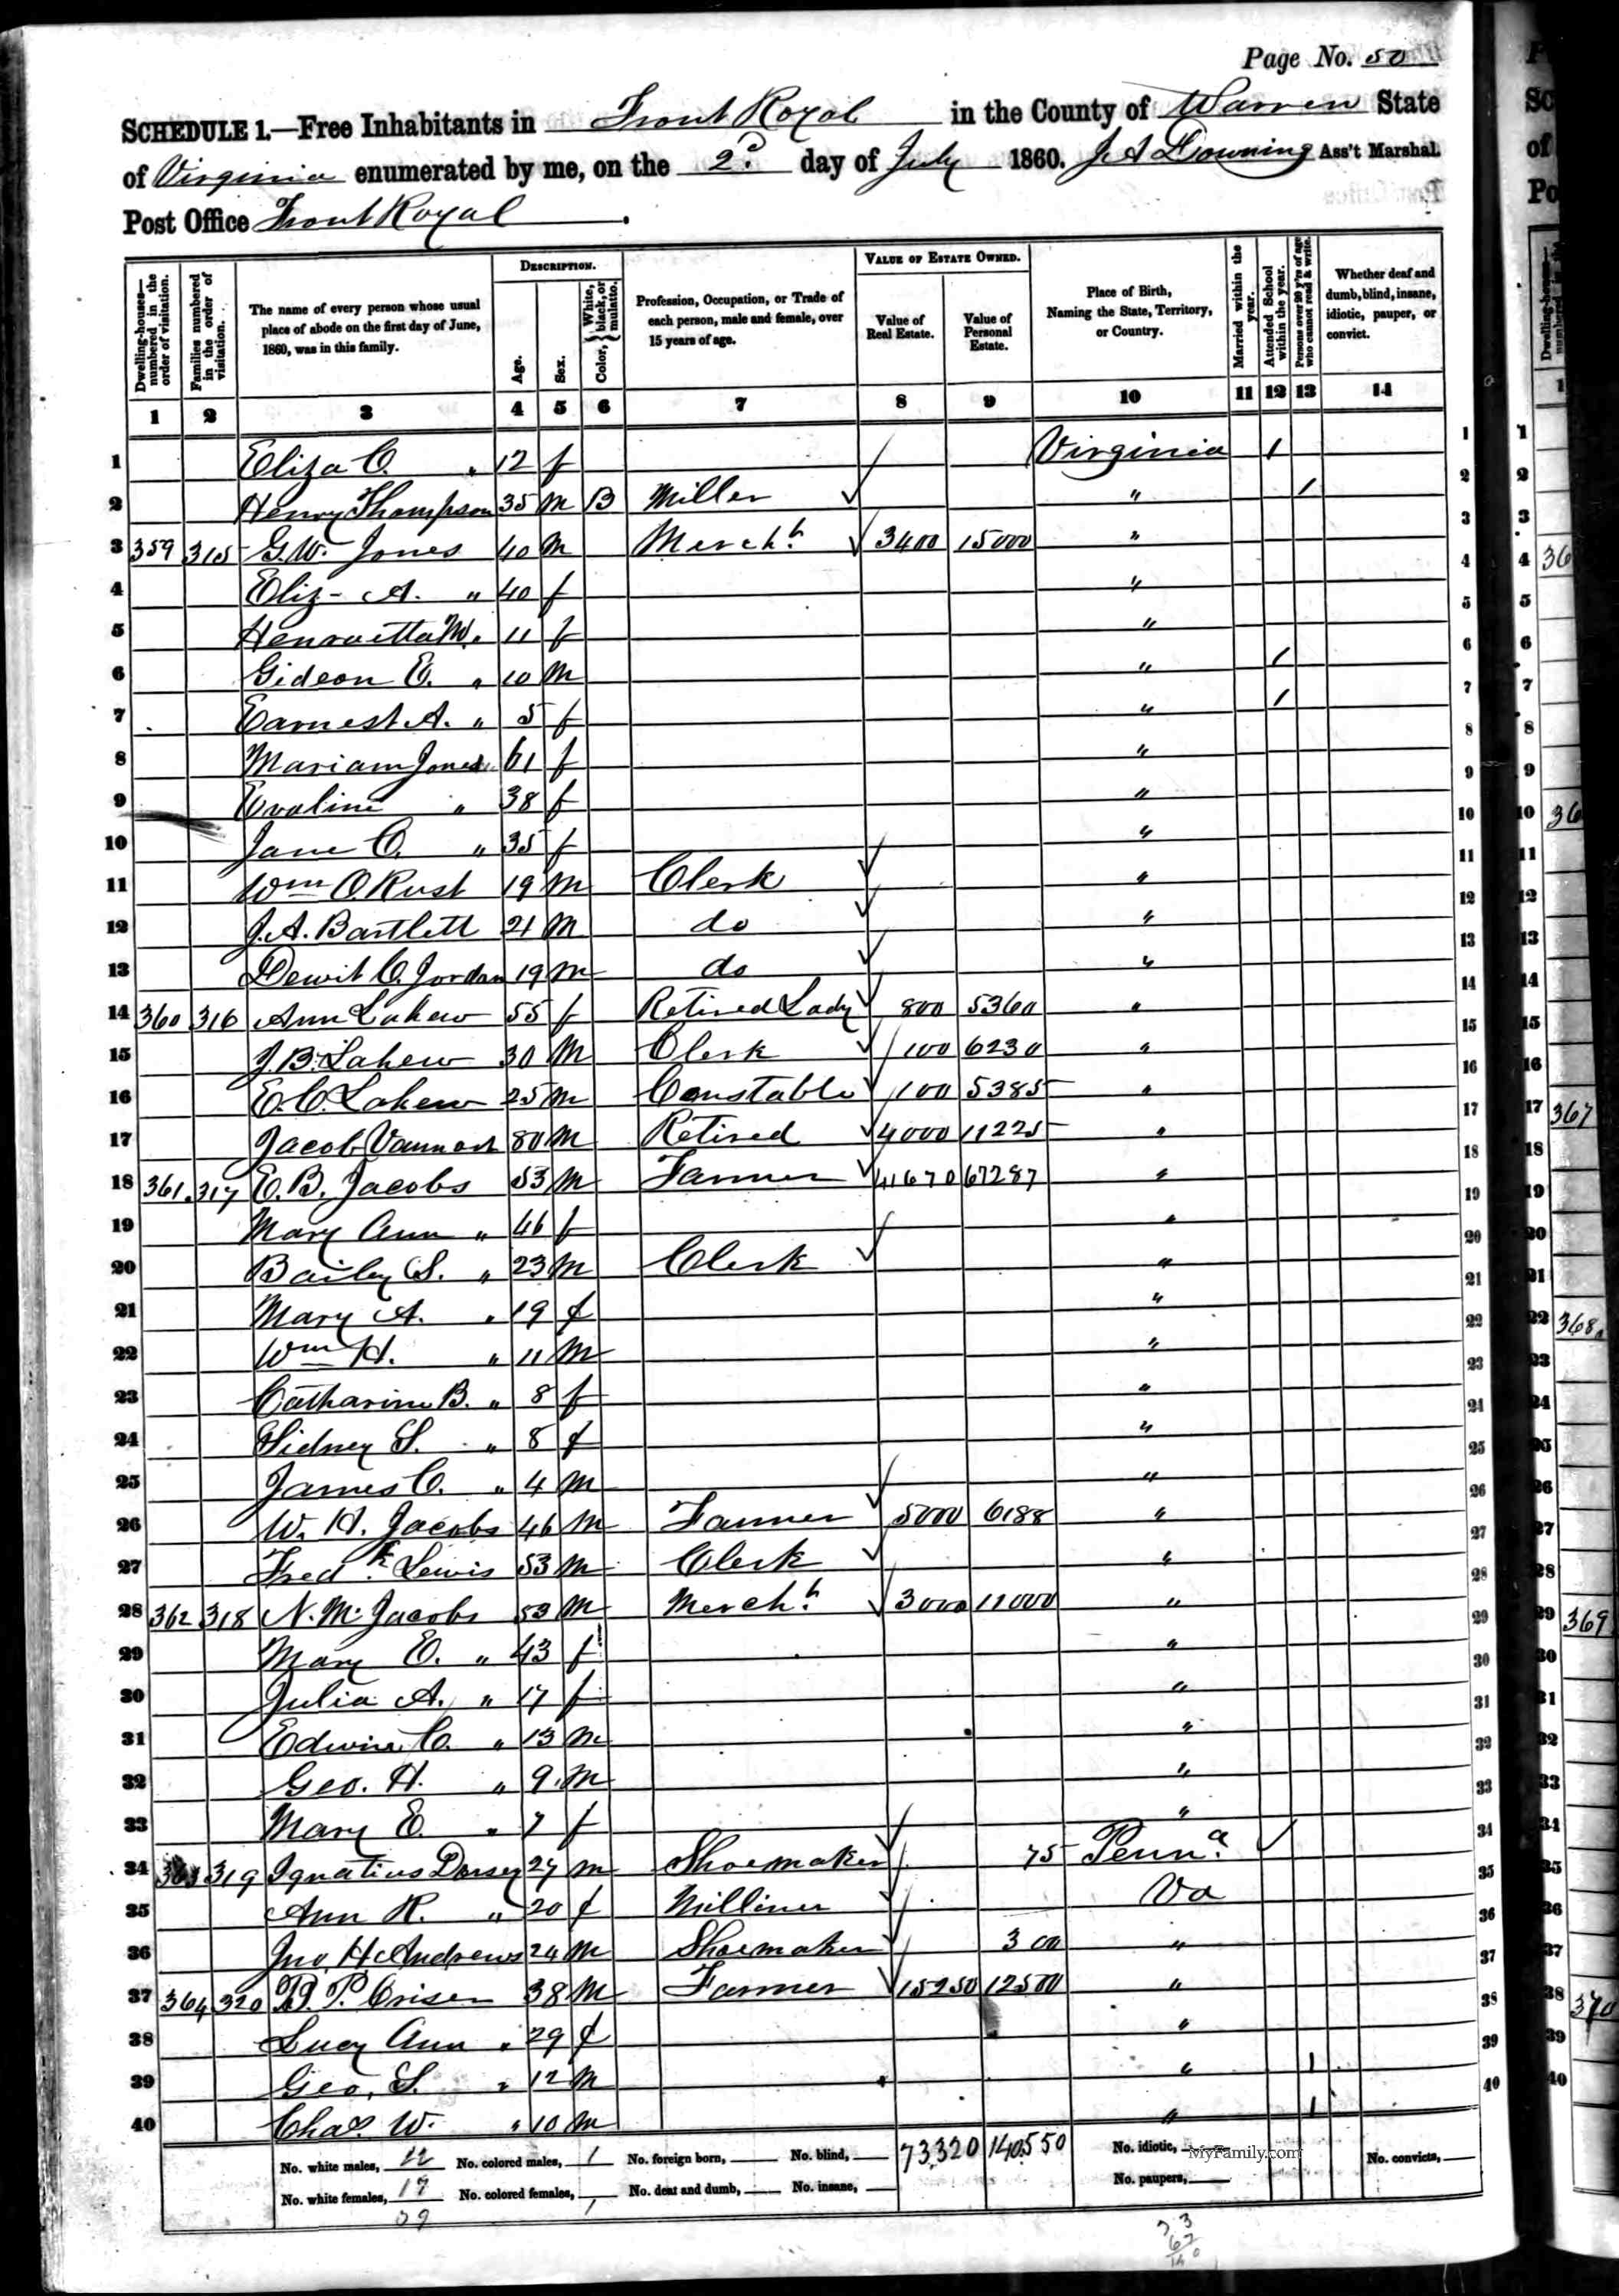 Page No. 50
SCHEDULE 1.—Free Inhabitants in Front Royal in the County of Warren State
of Virginia enumerated by me, on the 2d day of July 1860. J A Downing Ass't Marshal.
Post Office Front Royal.
Dwelling-houses—numbered in the order of visitation.
Families numbered in the order of visitation.
The name of every person whose usual place of abode on the first day of June, 1860, was in this family.
DESCRIPTION.
Age.
Sex.
Color, White, black, or mulatto.
Profession, Occupation, or Trade of each person, male and female, over 15 years of age.
VALUE OF ESTATE OWNED.
Value of Real Estate.
Value of Personal Estate.
Place of Birth, Naming the State, Territory, or Country.
Married within the year.
Attended School within the year.
Persons over 20 y'rs of age who cannot read & write.
Whether deaf and dumb, blind, insane, idiotic, pauper, or convict.
1 2 3 4 5 6 7 8 9 10 11 12 13 14
1 Eliza C. " 12 f Virginia / 1
2 Henry Thompson 35 m B Miller " / 2
3 359 315 G. W. Jones 40 m Mercht 3400 15000 " 3
4 Eliz- A. " 40 f " 4
5 Henrietta M. 11 f " 5
6 Gideon E. " 10 m " / 6
7 Earnest A. " 5 f " / 7
8 Mariam Jones 61 f " 8
9 Evaline " 38 f " 9
10 Jane C. " 35 f " 10
11 Wm O. Rust 19 m Clerk " 11
12 J. A. Bartlett 21 m do " 12
13 Dewit C. Jordan 19 m do " 13
14 360 316 Ann Lahew 55 f Retired Lady 800 5360 " 14
15 J. B. Lahew 30 m Clerk 100 6230 " 15
16 E. C. Lahew 25 m Constable 100 5385 " 16
17 Jacob 80 m Retired 4000 11225 " 17
18 361 317 E. B. Jacobs 53 m Farmer 41670 67287 " 18
19 Mary Ann " 46 f " 19
20 Bailey S. " 23 m Clerk " 20
21 Mary A. " 19 f " 21
22 Wm H. " 11 m " 22
23 Catharine B. " 8 f " 23
24 Sidney S. " 8 f " 24
25 James C. " 4 m " 25
26 W. H. Jacobs 46 m Farmer 5000 6188 " 26
27 Fredk Lewis 53 m Clerk " 27
28 362 318 N. M. Jacobs 53 m Mercht 3000 11000 " 28
29 Mary E. " 43 f " 29
30 Julia A. " 17 f " 30
31 Edwin C. " 13 m " 31
32 Geo. H. " 9 m " 32
33 Mary E. " 7 f " 33
34 363 319 Ignatius Dorsey 27 m Shoemaker 75 Penna. / 34
35 Ann R. " 20 f Milliner Va 35
36 Jno. H. Andrews 24 m Shoemaker 300 " 36
37 364 320 B. P. Criser 38 m Farmer 15250 12500 " 37
38 Lucy Ann " 29 f " 38
39 Geo. S. " 12 m " 1 39
40 Chas. W. " 10 m " 1 40
No. white males, No. colored males, 1 No. foreign born, No. blind, 73320 140550 No. idiotic, No. convicts,
No. white females, No. colored females, No. deaf and dumb, No. insane, No. paupers,
39 1
MyFamily.com
367
368
369
370